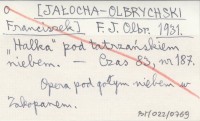 o [JAŁOCHA-OLBRYCHSKI
Franciszek] F. J. Olbr. 1931.
"Halka" pod tatrzańskiem
niebem. — Czas 83, nr 187.
Opera pod gołym niebem w
Zakopanem.